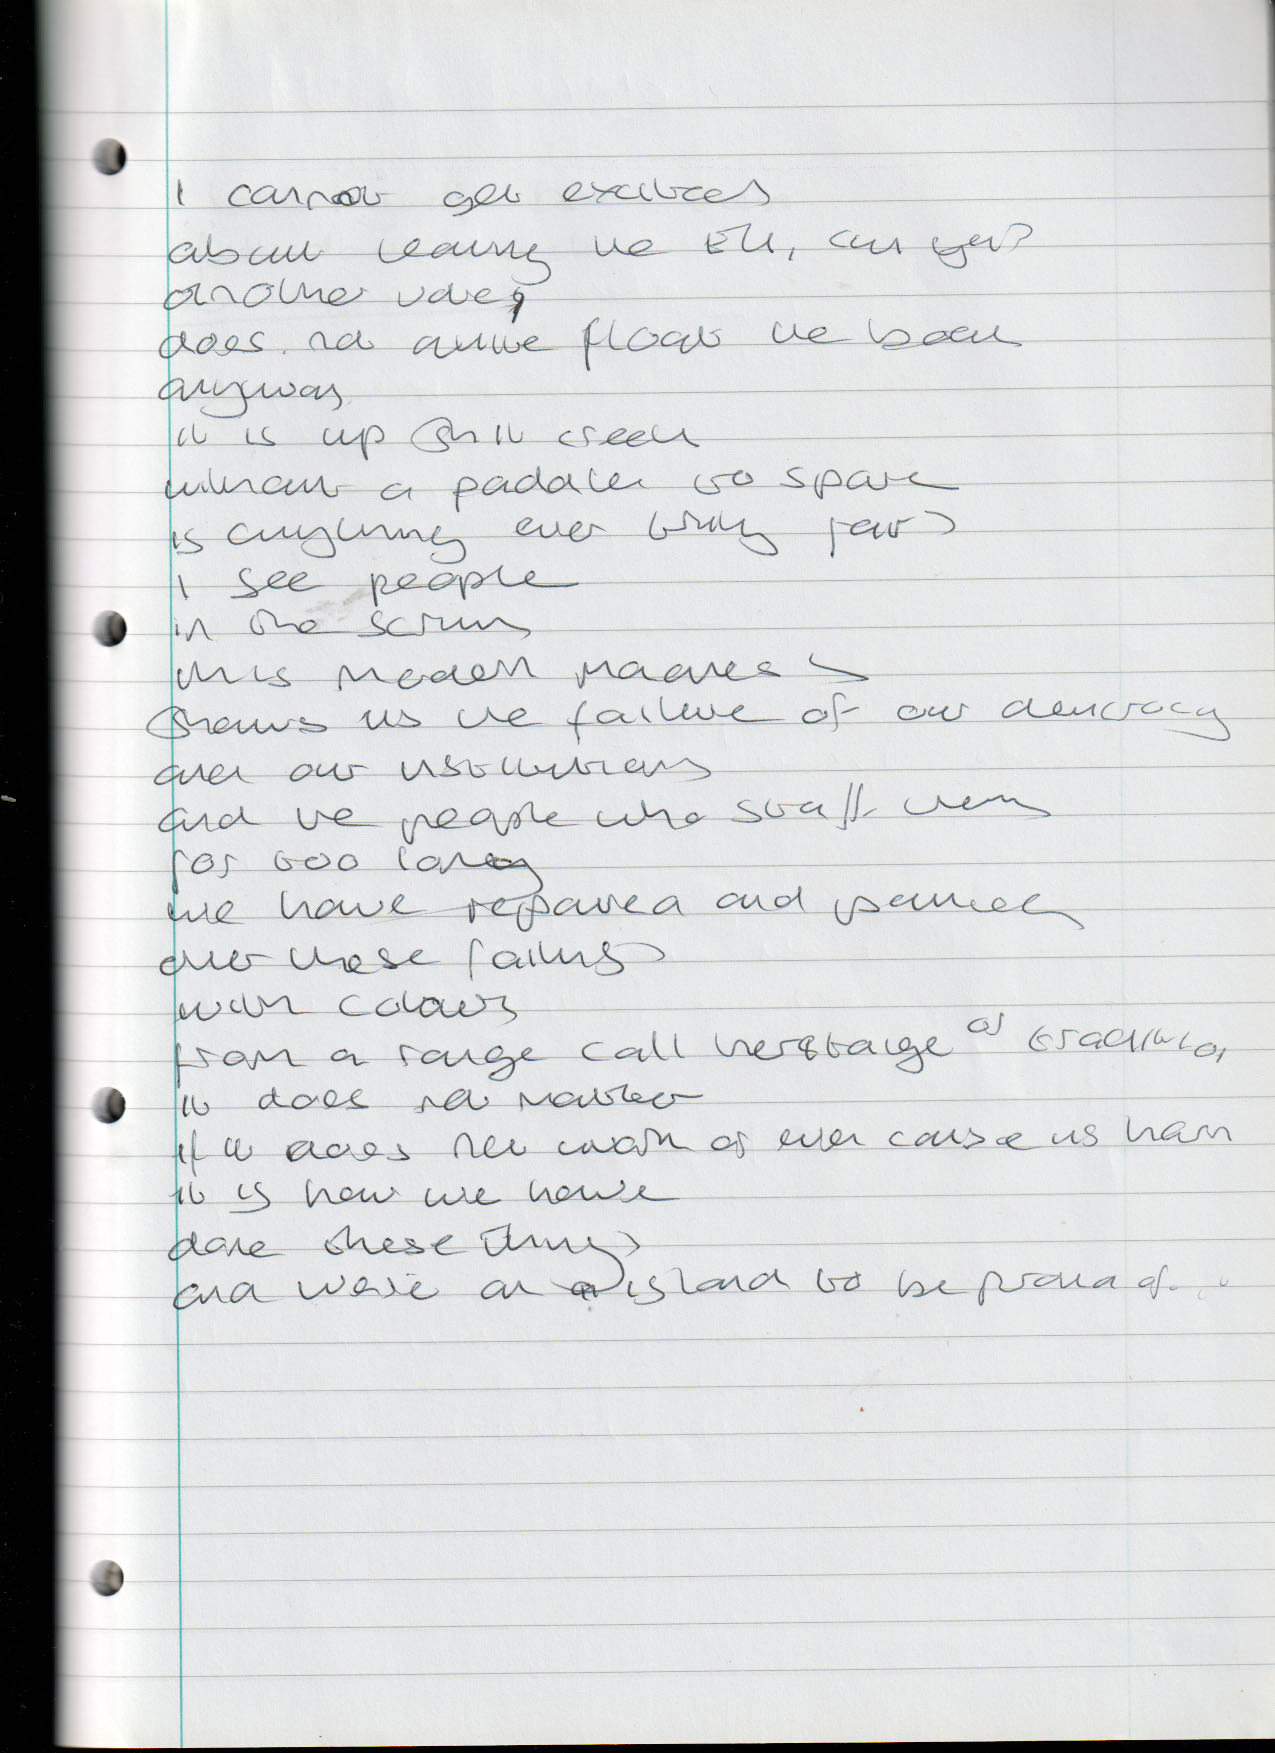 I cannot get excited
about leaving the EU, can you?
another vote,
does not quite float the boat
anyway
it is up shit creek
without a paddle to spare
is anything ever truly fair?
I see people
in the scrum
this modern madness
shows us the failure of our democracy
and our institutions
and the people who staff them
for too long
we have repaired and painted
over these failings
with colours
from a range call heritage or tradition
it does not matter
if it does not work or even cause us harm
it is how we have
done these things
and we're an island to be proud of..